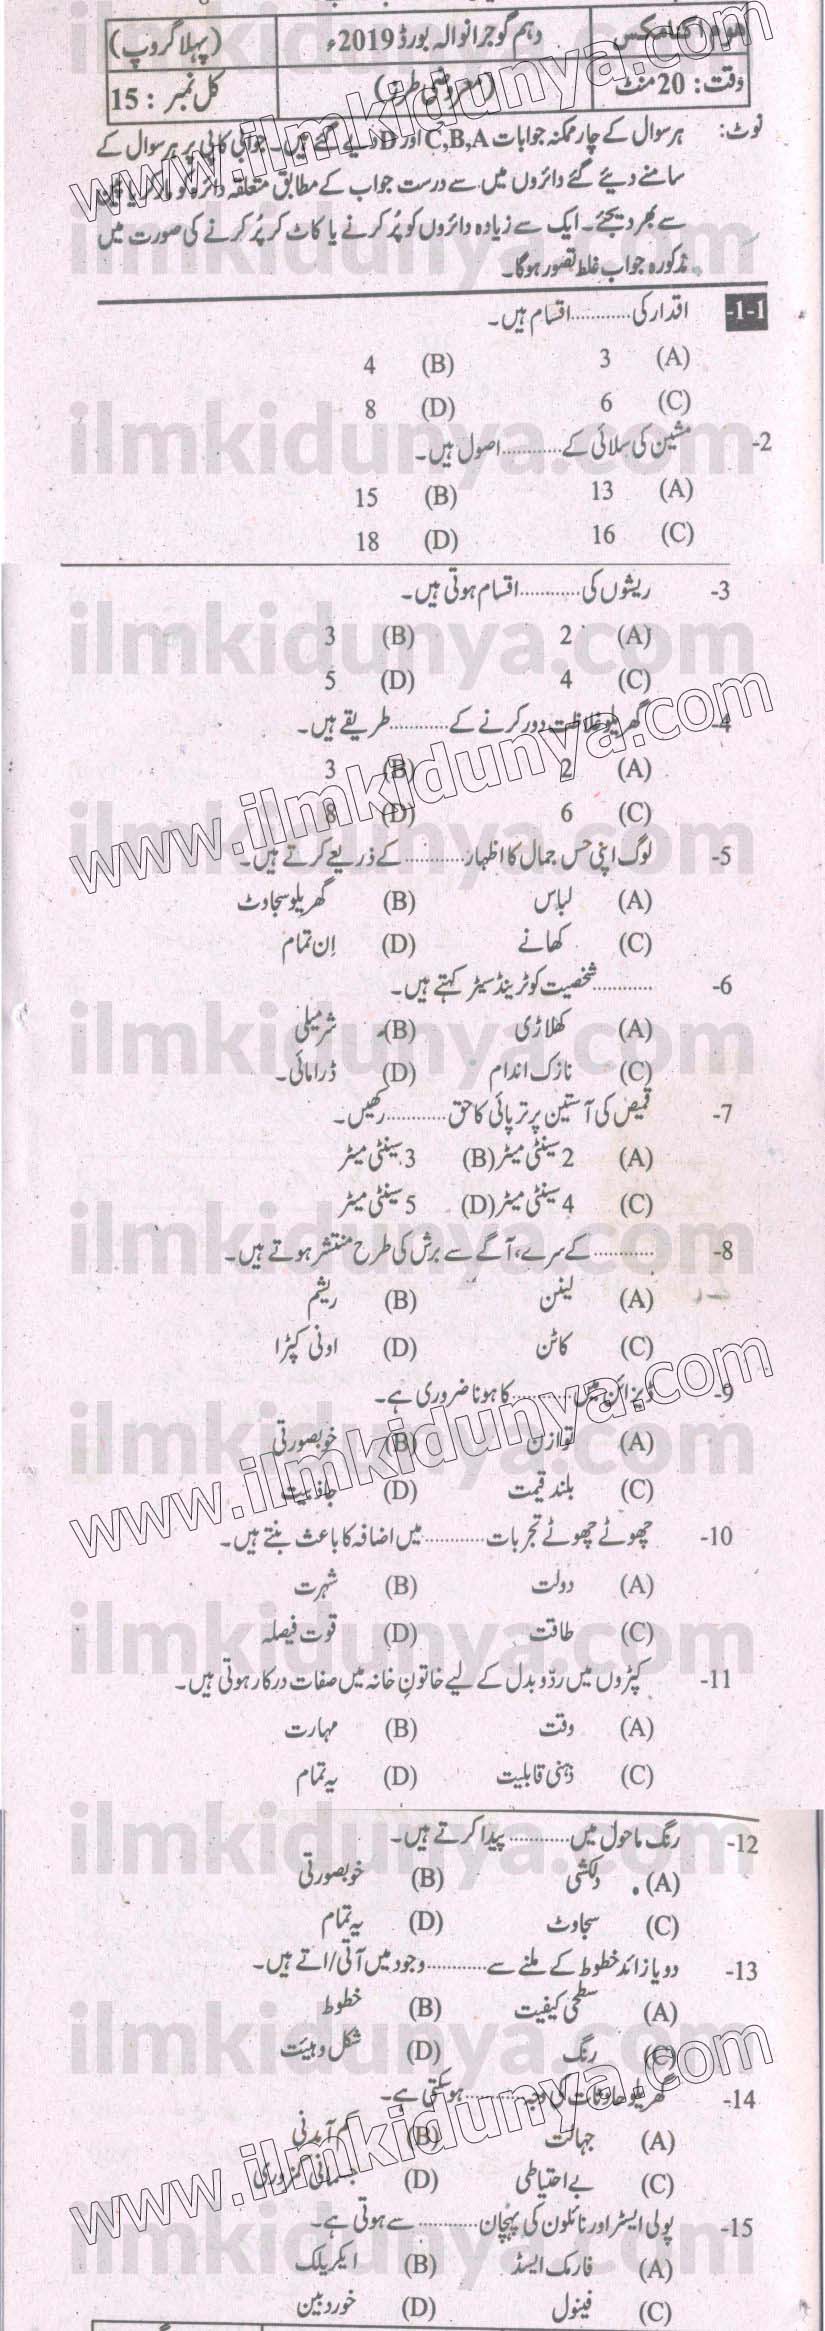 ہوم اکنامکس
دہم گوجرانوالہ بورڈ 2019ء
(پہلا گروپ)
وقت: 20 منٹ
(معروضی طرز)
کل نمبر : 15
نوٹ: ہر سوال کے چار ممکنہ جوابات C,B,A اور D دیے گئے ہیں۔ جوابی کاپی پر ہر سوال کے
سامنے دیئے گئے دائروں میں سے درست جواب کے مطابق متعلقہ دائرہ کو مارکر یا پین
سے بھر دیجئے۔ ایک سے زیادہ دائروں کو پُر کرنے یا کاٹ کر پُر کرنے کی صورت میں
مذکورہ جواب غلط تصور ہوگا۔
1-1- اقدار کی ............ اقسام ہیں۔
(A) 3 (B) 4
(C) 6 (D) 8
2- مشین کی سلائی کے ............ اصول ہیں۔
(A) 13 (B) 15
(C) 16 (D) 18
3- ریشوں کی ............ اقسام ہوتی ہیں۔
(A) 2 (B) 3
(C) 4 (D) 5
4- گھریلو غلاظت دور کرنے کے ............ طریقے ہیں۔
(A) 2 (B) 3
(C) 6 (D) 8
5- لوگ اپنی حس جمال کا اظہار ............ کے ذریعے کرتے ہیں۔
(A) لباس (B) گھریلو سجاوٹ
(C) کھانے (D) اِن تمام
6- ............ شخصیت کو ٹرینڈ سیٹر کہتے ہیں۔
(A) کھلاڑی (B) شرمیلی
(C) نازک اندام (D) ڈرامائی۔
7- قمیض کی آستین پر ترپائی کا حق ............ رکھیں۔
(A) 2 سینٹی میٹر (B) 3 سینٹی میٹر
(C) 4 سینٹی میٹر (D) 5 سینٹی میٹر
8- ............ کے سرے، آگے سے برش کی طرح منتشر ہوتے ہیں۔
(A) لینن (B) ریشم
(C) کاٹن (D) اونی کپڑا
9- ڈیزائن میں ............ کا ہونا ضروری ہے۔
(A) توازن (B) خوبصورتی
(C) بلند قیمت (D) جاذبیت
10- چھوٹے چھوٹے تجربات ............ میں اضافہ کا باعث بنتے ہیں۔
(A) دولت (B) شہرت
(C) طاقت (D) قوت فیصلہ
11- کپڑوں میں ردّ و بدل کے لیے خاتونِ خانہ میں صفات درکار ہوتی ہیں۔
(A) وقت (B) مہارت
(C) ذہنی قابلیت (D) یہ تمام
12- رنگ ماحول میں ............ پیدا کرتے ہیں۔
(A) دلکشی (B) خوبصورتی
(C) سجاوٹ (D) یہ تمام
13- دو یا زائد خطوط کے ملنے سے ............ وجود میں آتی/اتے ہیں۔
(A) سطحی کیفیت (B) خطوط
(C) رنگ (D) شکل و ہیئت
14- گھریلو حادثات کی وجہ ............ ہو سکتی ہے۔
(A) جہالت (B) کم آمدنی
(C) بے احتیاطی (D) جسمانی کمزوری
15- پولی ایسٹر اور نائلون کی پہچان ............ سے ہوتی ہے۔
(A) فارمک ایسڈ (B) ایکریلک
(C) فینول (D) خوردبین
www.ilmkidunya.com
www.ilmkidunya.com
www.ilmkidunya.com
www.ilmkidunya.com
ilmkidunya.com
ilmkidunya.com
ilmkidunya.com
ilmkidunya.com
ilmkidunya.com
ilmkidunya.com
ilmkidunya.com
ilmkidunya.com
ilmkidunya.com
ilmkidunya.com
ilmkidunya.com